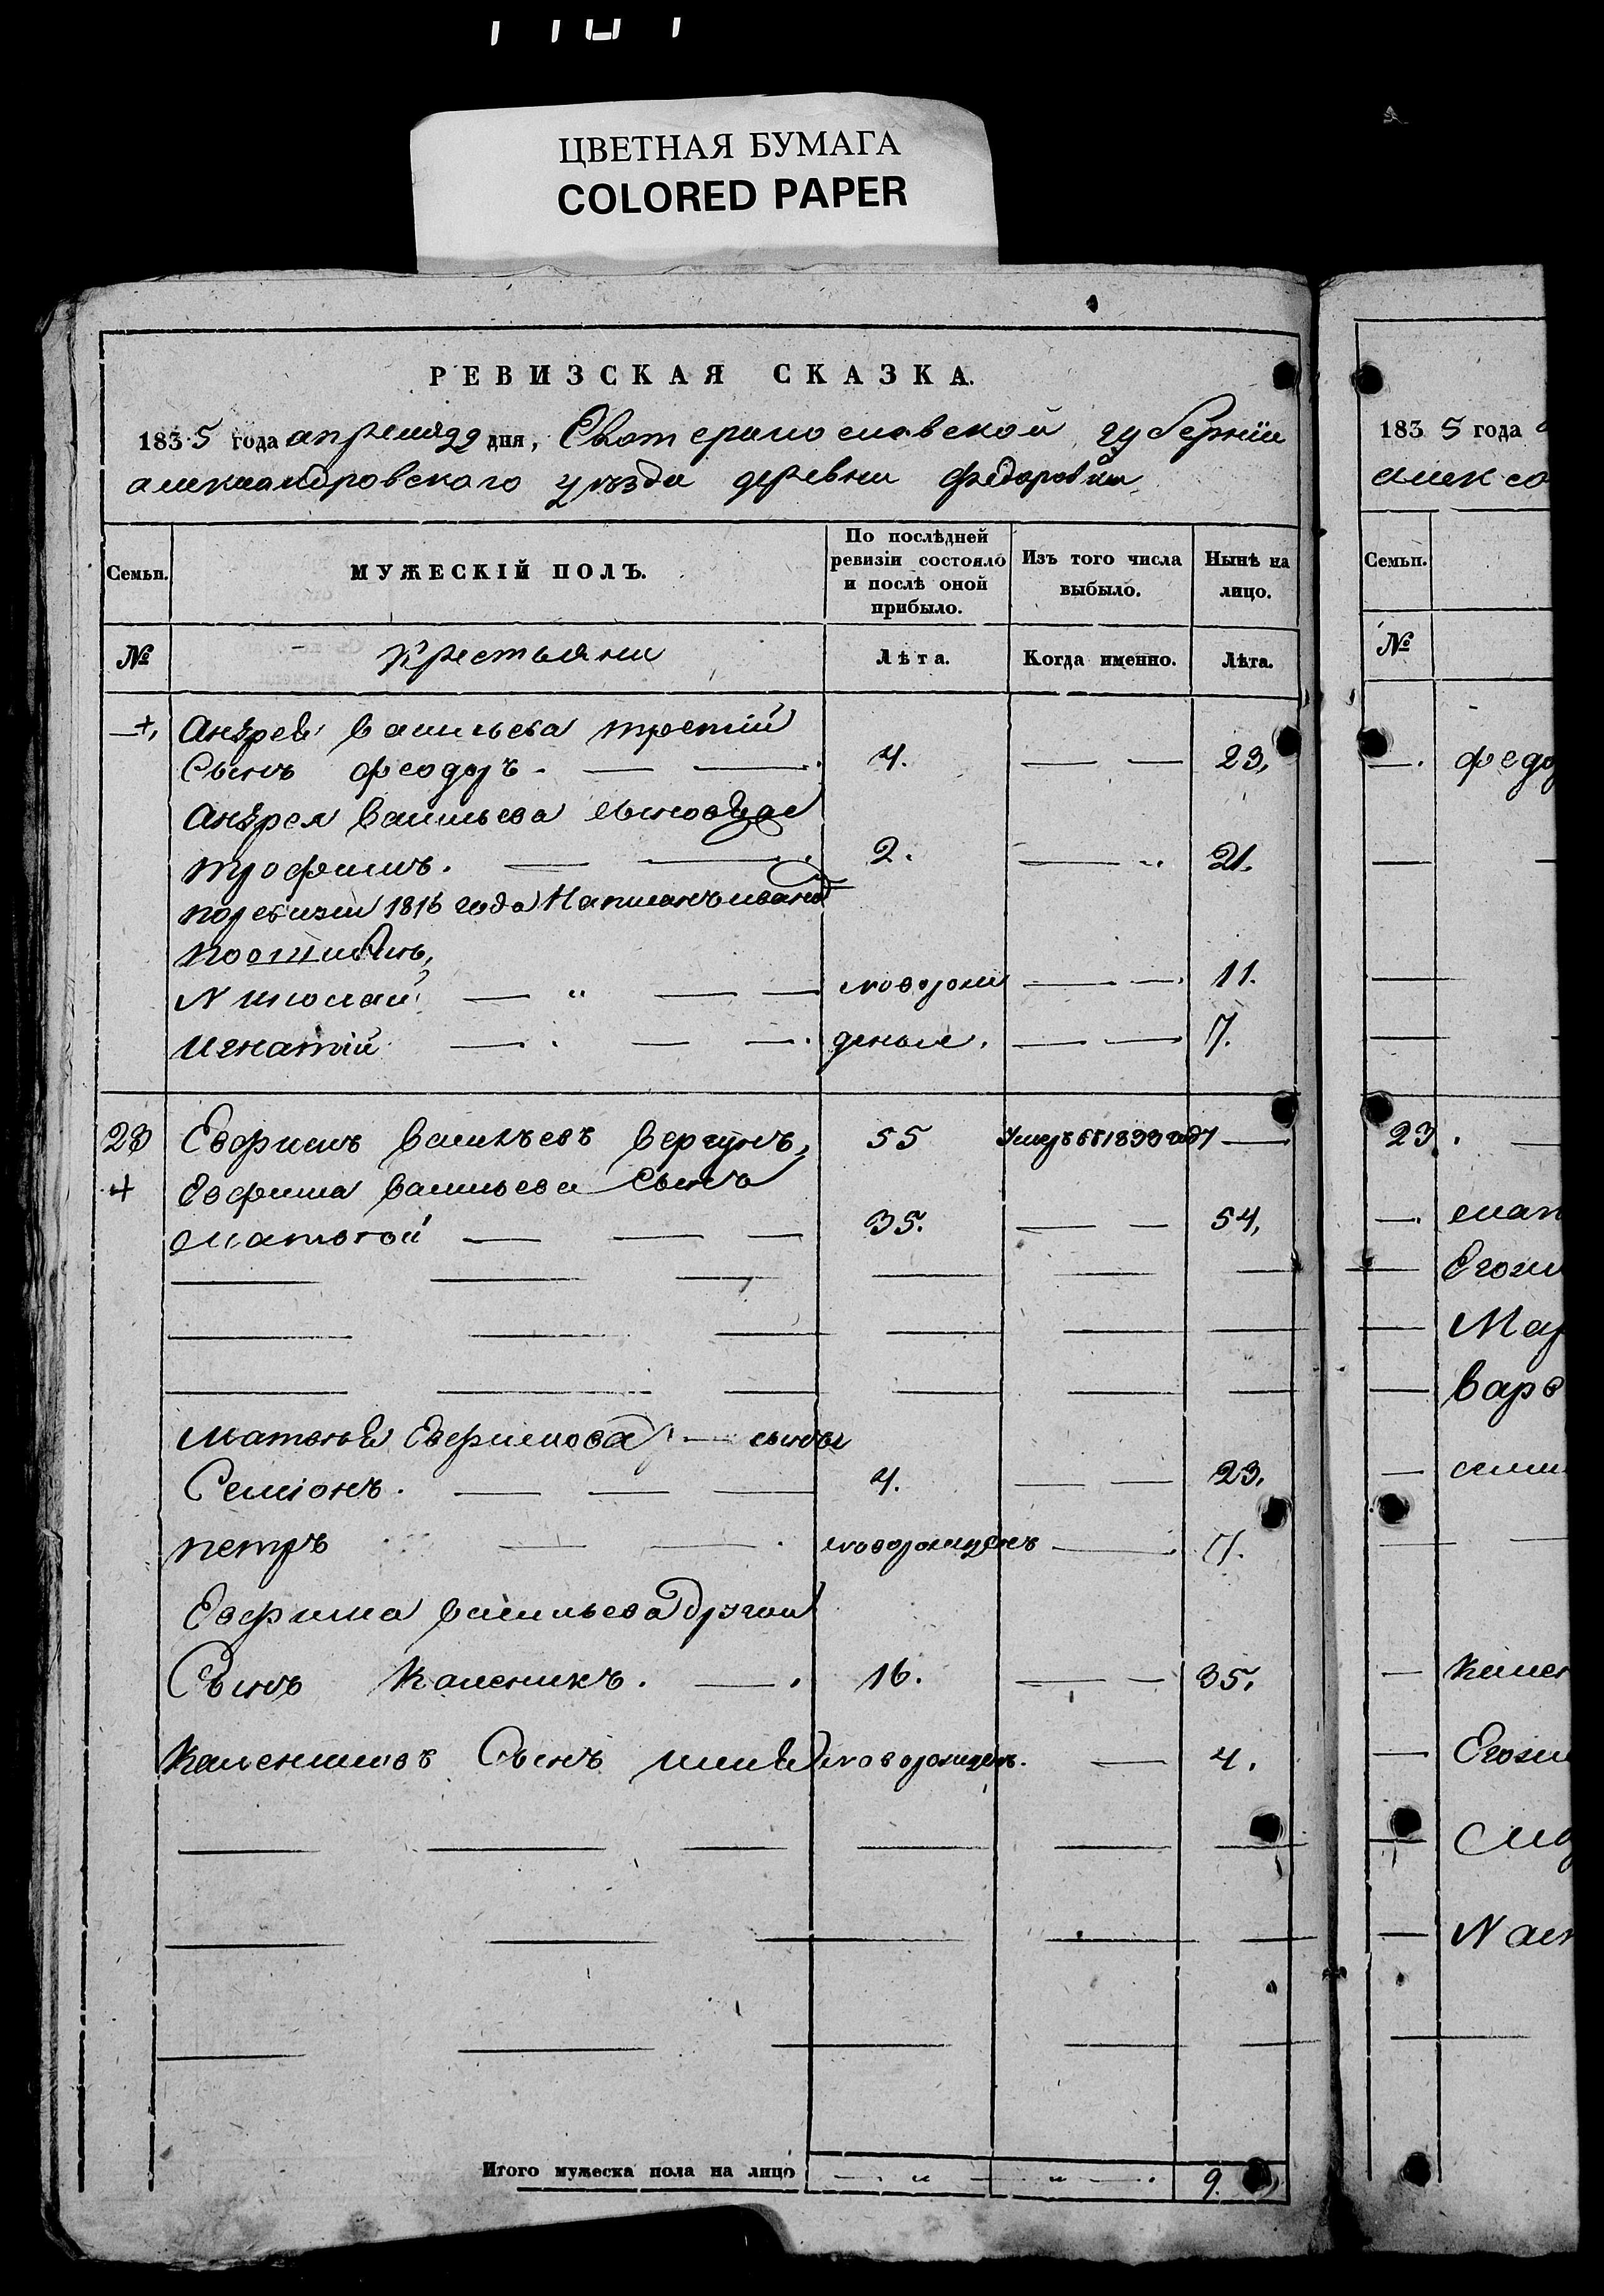 ЦВЕТНАЯ БУМАГА
COLORED PAPER
РЕВИЗСКАЯ СКАЗКА.
1835 года апреля 22 дня, Екатеринославской губерніи
александровского уѣзда деревни федоровки
Семьи.
МУЖЕСКІЙ ПОЛЪ.
По послѣдней ревизіи состояло и послѣ оной прибыло.
Изъ того числа выбыло.
Нынѣ на лицо.
№
Крестьяни
Лѣта.
Когда именно.
Лѣта.
Андрея васильева третій
Сынъ феодоръ. 4. 23,
Андрея васильева
трофимъ. 2. 21.
поревизіи 1816 года Написанъ
Николай новорож 11.
Игнатій деные. 7.
23 Евфимъ васильевъ вергунъ, 55 Умеръ въ 1833 году
+ Евфима васильева Сынъ
матвей 35. 54,
матвея Евфимова сыновья
Семіонъ. 4. 23.
петръ новорожденъ 7.
Евфима васильева другой
Сынъ Каленикъ. 16. 35.
Калениковъ Сынъ новорожденъ. 4.
Итого мужеска пола на лицо 9.
183 5 года
алексa
Семьи.
№
федо
23.
мат
Мар
варв